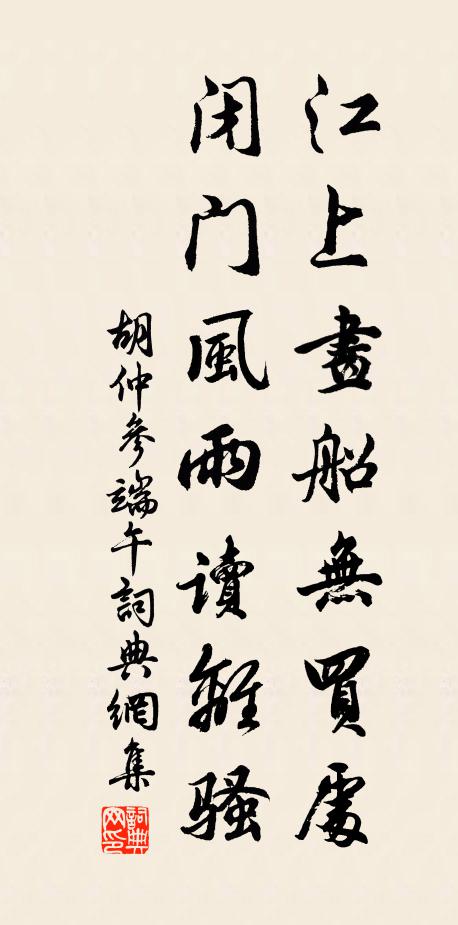 江上畫船無買處
闭门風雨讀離騷
胡仲參端午詞典網集
詞典網印